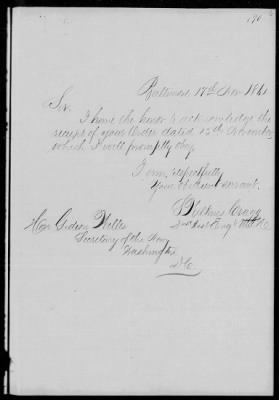 190
Baltimore 17th Nov 1861
Sir.
I have the honor to acknowledge the
receipt of your Order dated 15th November
which I will promptly obey
I am, respectfully
Your Obedient Servant.
Hon Gideon Welles
Secretary of the Navy
Washington
D.C.